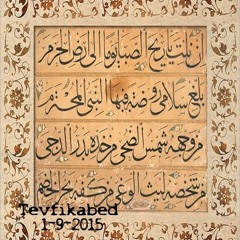 ان نلت يا ريح الصبا يوما الى ارض الحرم
بلغ سلامي روضة فيها النبي المحترم
من وجهه شمس الضحى من خده بدر الدجى
من شخصه ليث الوغى من كفه بحر
Tevfikabed
1-9-2015